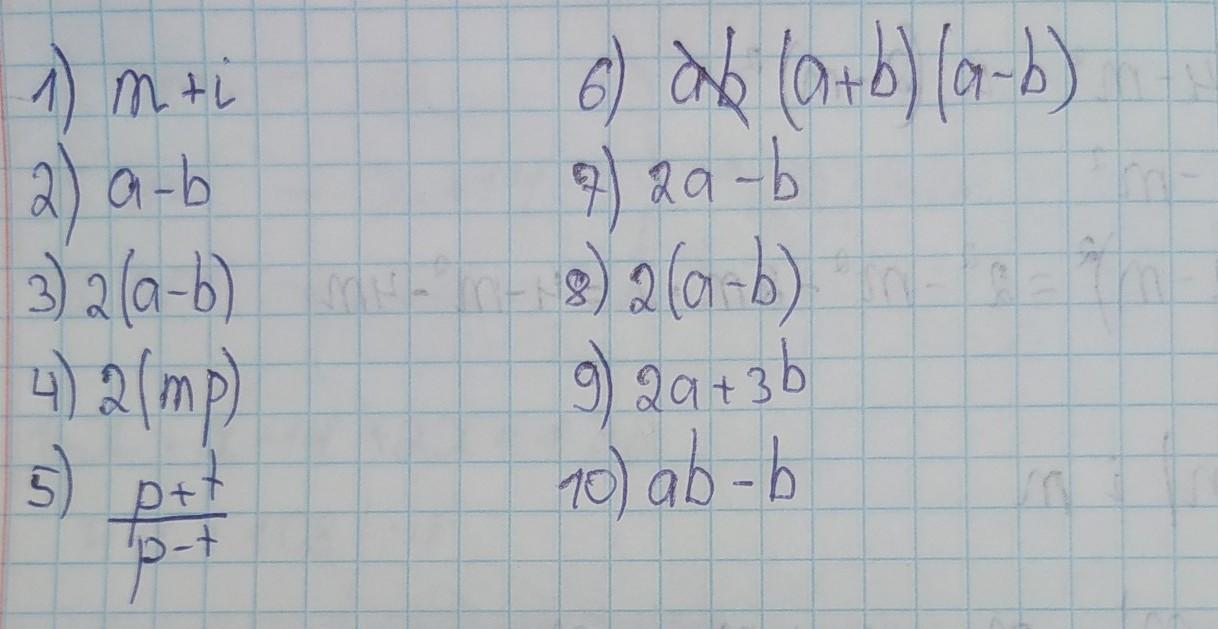 1) m+i
2) a-b
3) 2(a-b)
4) 2(mp)
5) p+t
p-t
6) (a+b)(a-b)
7) 2a-b
8) 2(a-b)
9) 2a+3b
10) ab-b